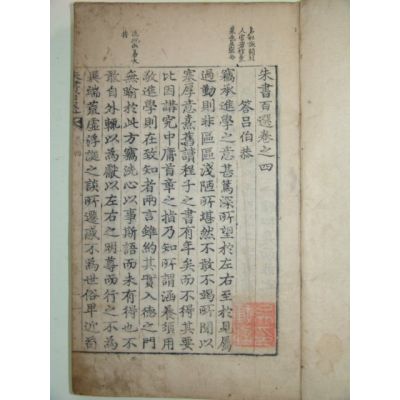 朱書百選卷之四
答呂伯恭
竊承進學之意甚篤深所望於左右至於見屬
過勤則非區區淺陋所堪然不敢不竭所聞以
塞厚意熹舊讀程子之書有年矣而不得其要
比因講究中庸首章之指乃知所謂涵養須用
敬進學則在致知者兩言雖約其實入德之門
無踰於此方竊洗心以事斯語而未有得也不
敢自外輒以為獻以左右之明尊而行之不為
異端荒虛浮誕之談所遷惑不為世俗卑近苟